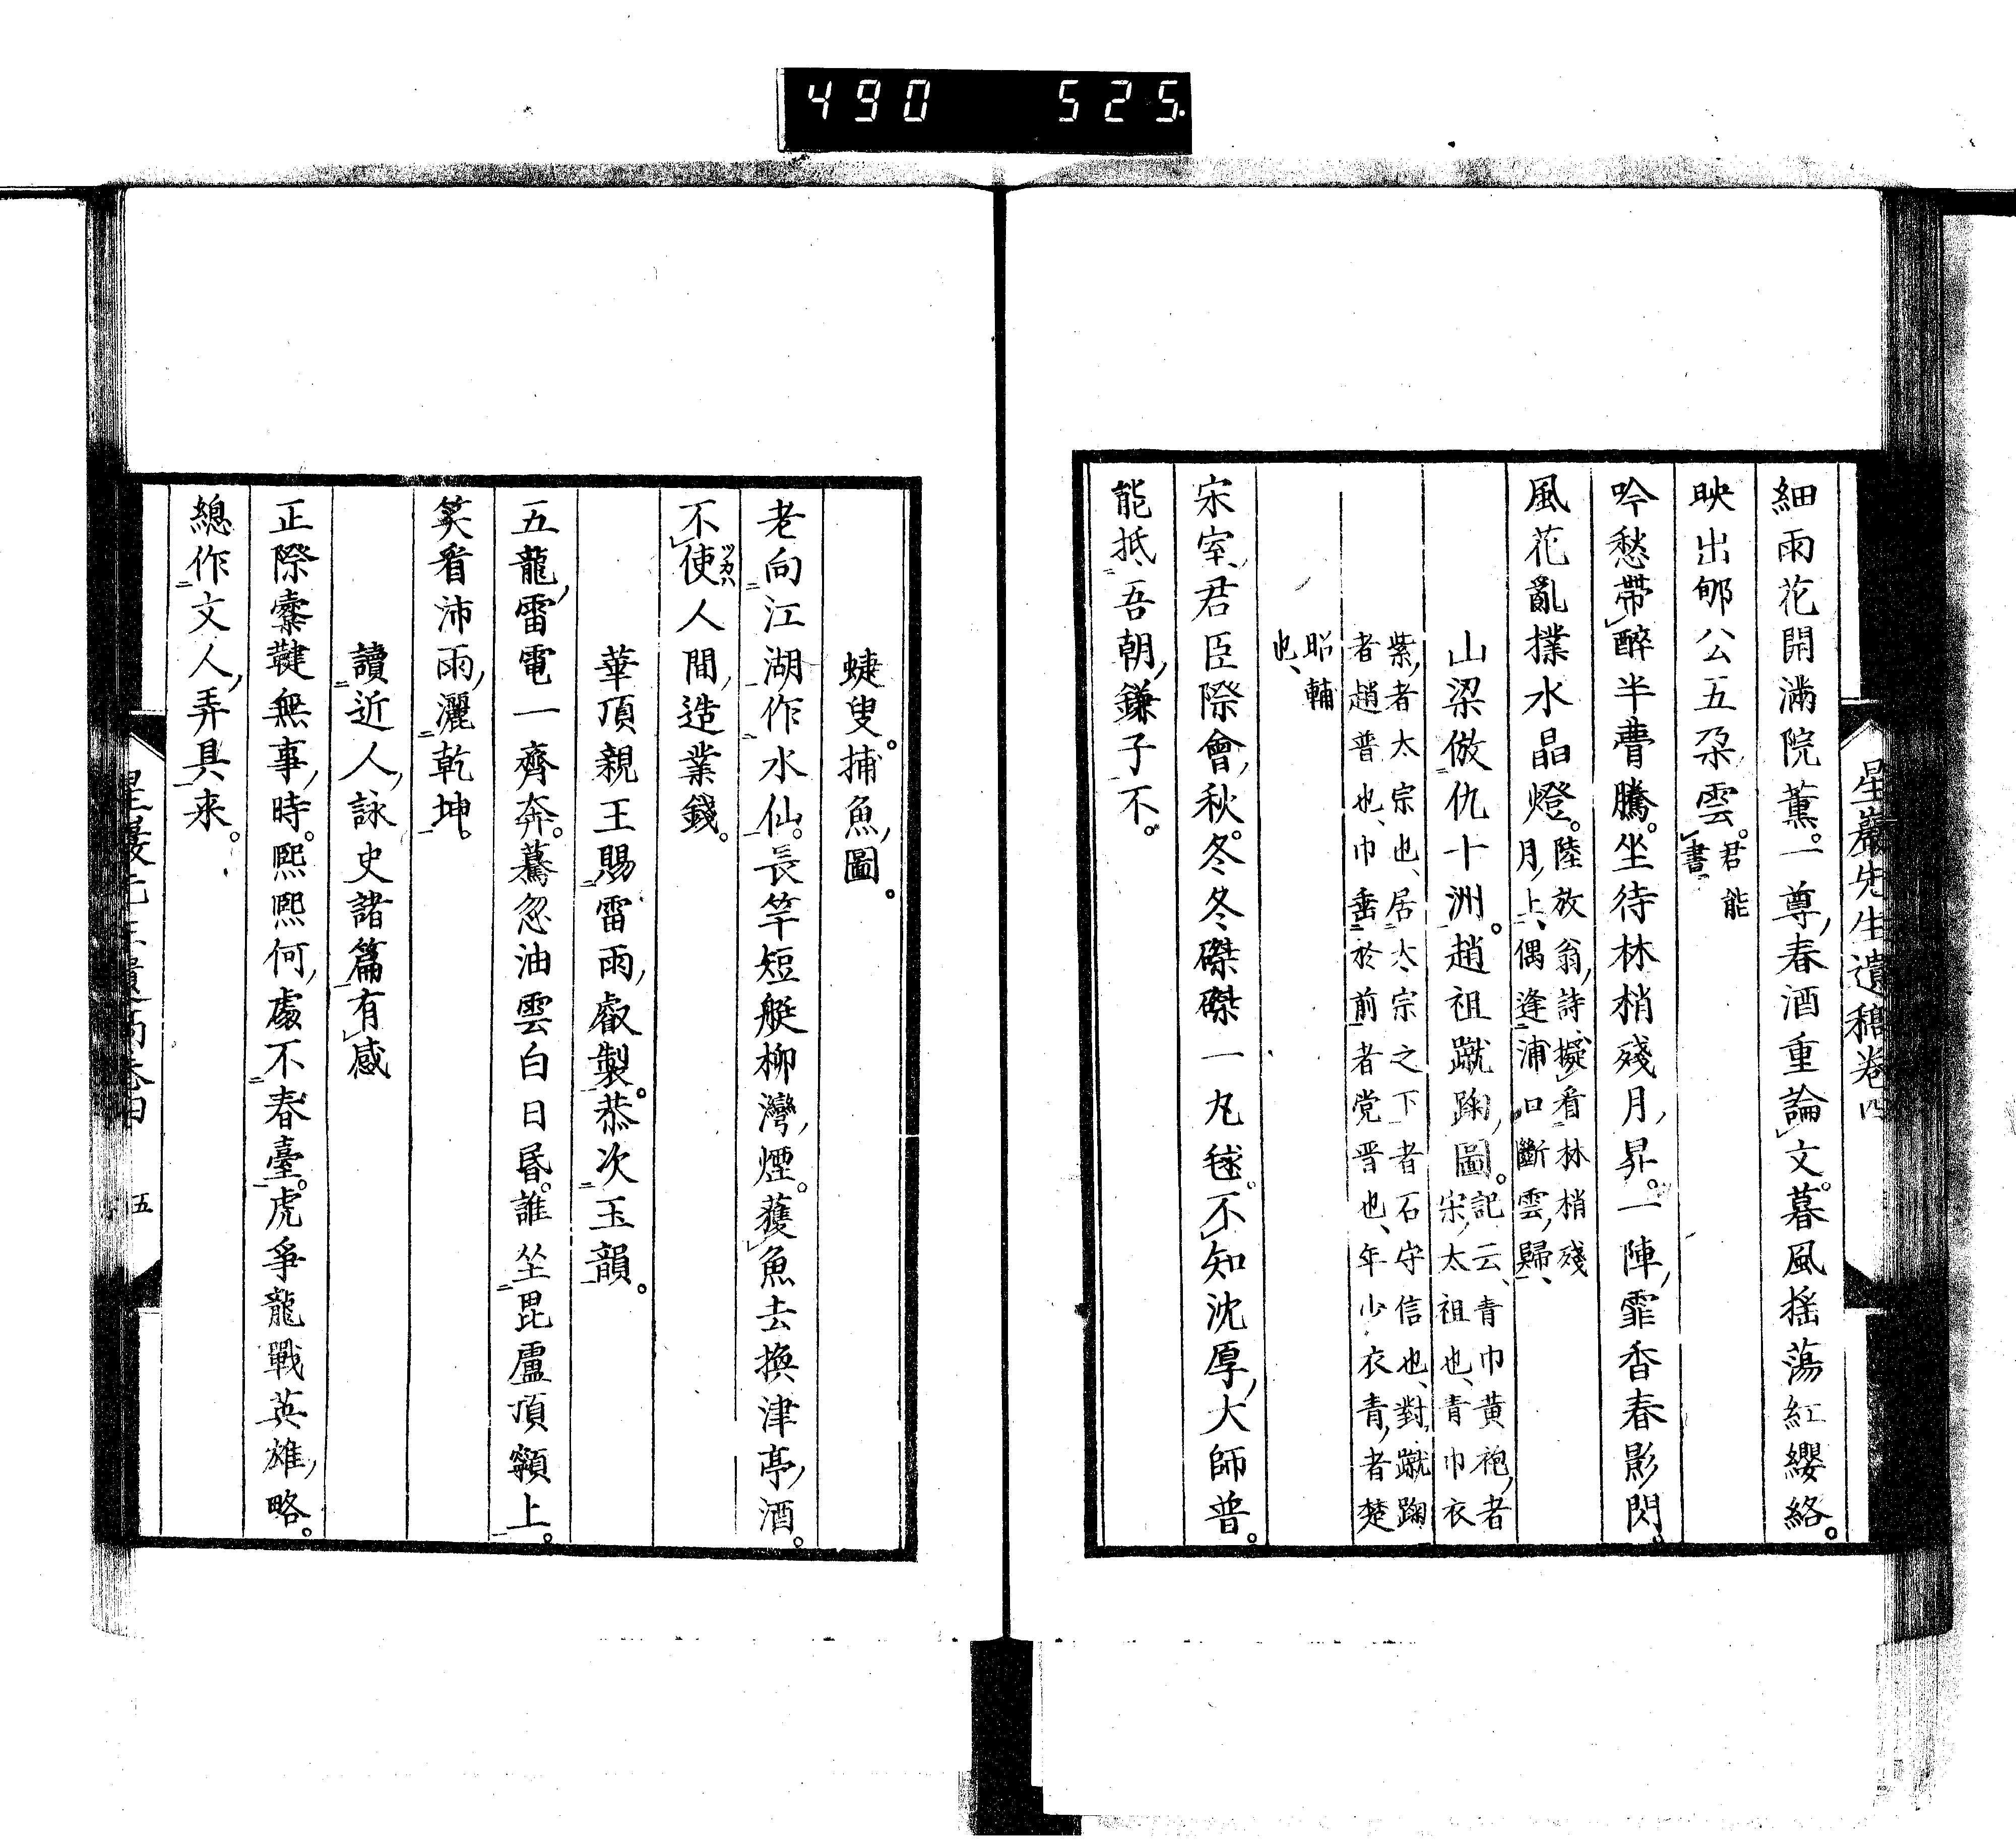 490 525.
星巖先生遺稿卷四
細雨花開滿院薰。一尊春酒重論文。暮風搖蕩紅纓絡。
映出郇公五朶雲。君能書、
吟愁帶醉半瞢騰。坐待林梢殘月昇。一陣霏香春影閃。
風花亂撲水晶燈。陸放翁詩、擬看林梢殘月上、偶逢浦口斷雲歸、
山梁倣仇十洲。趙祖蹴踘圖。記云、青巾黄袍者宋太祖也、青巾衣
紫者太宗也、居太宗之下者石守信也、對蹴踘者趙普也、巾垂於前者党晋也、年少衣青者楚
昭輔也、
宋室君臣際會秋。冬冬磔磔一丸毬。不知沈厚大師普。
能抵吾朝鎌子不。
蜨叟捕魚圖。
老向江湖作水仙。長竿短艇柳灣煙。獲魚去換津亭酒。
不使人間造業錢。
ツカハ
華頂親王賜雷雨叡製。恭次玉韻。
五龍雷電一齊奔。驀忽油雲白日昏。誰坐毘盧頂顙上。
笑看沛雨灑乾坤。
讀近人詠史諸篇有感
正際櫜鞬無事時。熙熙何處不春臺。虎爭龍戰英雄略。
總作文人弄具来。
五